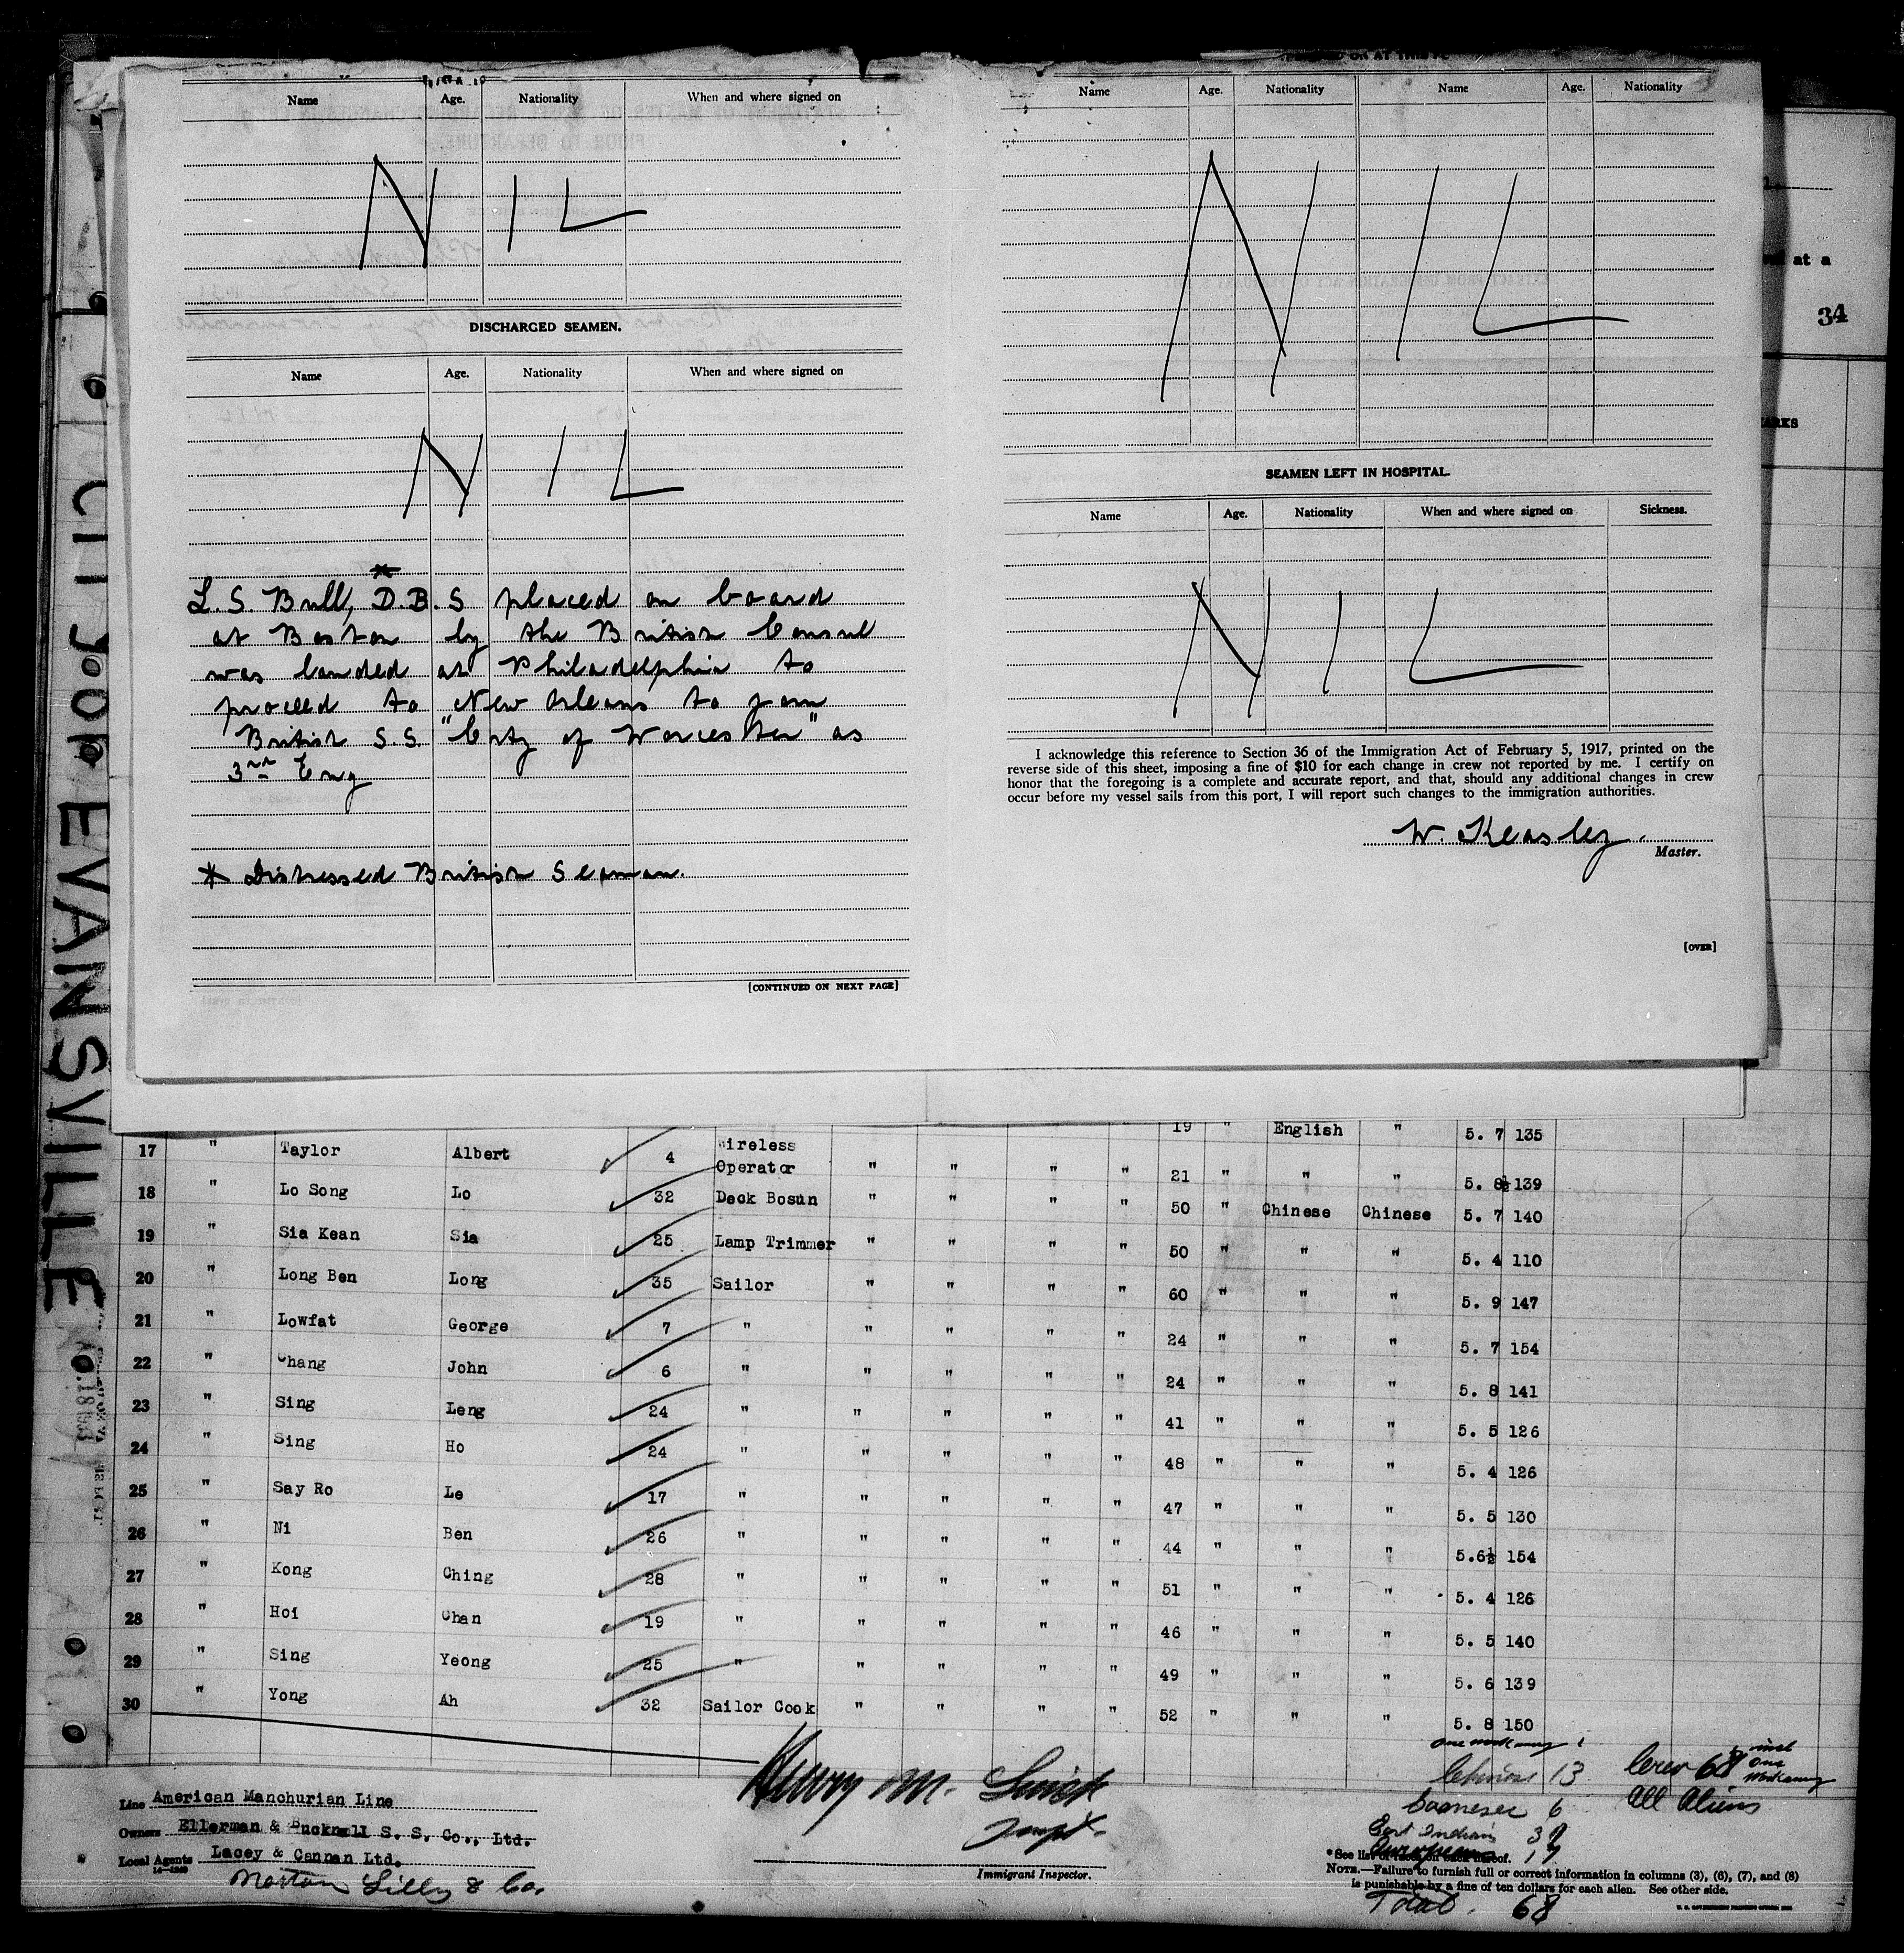 Name Age. Nationality When and where signed on
NIL
DISCHARGED SEAMEN.
Name Age. Nationality When and where signed on
NIL
*
L. S. Bull, D.B.S placed on board
at Boston by the British Consul
was landed at Philadelphia to
proceed to New Orleans to join
British S.S. "City of Worcester" as
3rd Eng
* Distressed British Seaman.
[CONTINUED ON NEXT PAGE]
Name Age. Nationality Name Age. Nationality
NIL
SEAMEN LEFT IN HOSPITAL.
Name Age. Nationality When and where signed on Sickness.
NIL
I acknowledge this reference to Section 36 of the Immigration Act of February 5, 1917, printed on the
reverse side of this sheet, imposing a fine of $10 for each change in crew not reported by me. I certify on
honor that the foregoing is a complete and accurate report, and that, should any additional changes in crew
occur before my vessel sails from this port, I will report such changes to the immigration authorities.
W. Keasley.
Master.
[OVER]
at a
34
EVANSVILLE
19 " English " 5. 7 135
17 " Taylor Albert 4 Wireless Operator " " " " 21 " " " 5. 8½ 139
18 " Lo Song Lo 32 Deck Bosun " " " " 50 " Chinese Chinese 5. 7 140
19 " Sia Kean Sia 25 Lamp Trimmer " " " " 50 " " " 5. 4 110
20 " Long Ben Long 35 Sailor " " " " 60 " " " 5. 9 147
21 " Lowfat George 7 " " " " " 24 " " " 5. 7 154
22 " Chang John 6 " " " " " 24 " " " 5. 8 141
23 " Sing Leng 24 " " " " " 41 " " " 5. 5 126
24 " Sing Ho 24 " " " " " 48 " " " 5. 4 126
25 " Say Ro Le 17 " " " " " 47 " " " 5. 5 130
26 " Ni Ben 26 " " " " " 44 " " " 5.6½ 154
27 " Kong Ching 28 " " " " " 51 " " " 5. 4 126
28 " Hoi Chan 19 " " " " " 46 " " " 5. 5 140
29 " Sing Yeong 25 " " " " " 49 " " " 5. 6 139
30 " Yong Ah 32 Sailor Cook " " " " 52 " " " 5. 8 150
Line American Manchurian Line
Owners Ellerman & Bucknell S. S. Co., Ltd.
Local Agents Lacey & Cannan Ltd.
Norton Lilly & Co.
Henry M.
Immigrant Inspector.
one workaway 1
Chinese 13
Goanese 6
East Indians
Europeans 17
Total. 68
Crew 68 incl one workaway
All Aliens
* See list of races on back hereof.
NOTE.—Failure to furnish full or correct information in columns (3), (6), (7), and (8)
is punishable by a fine of ten dollars for each alien. See other side.